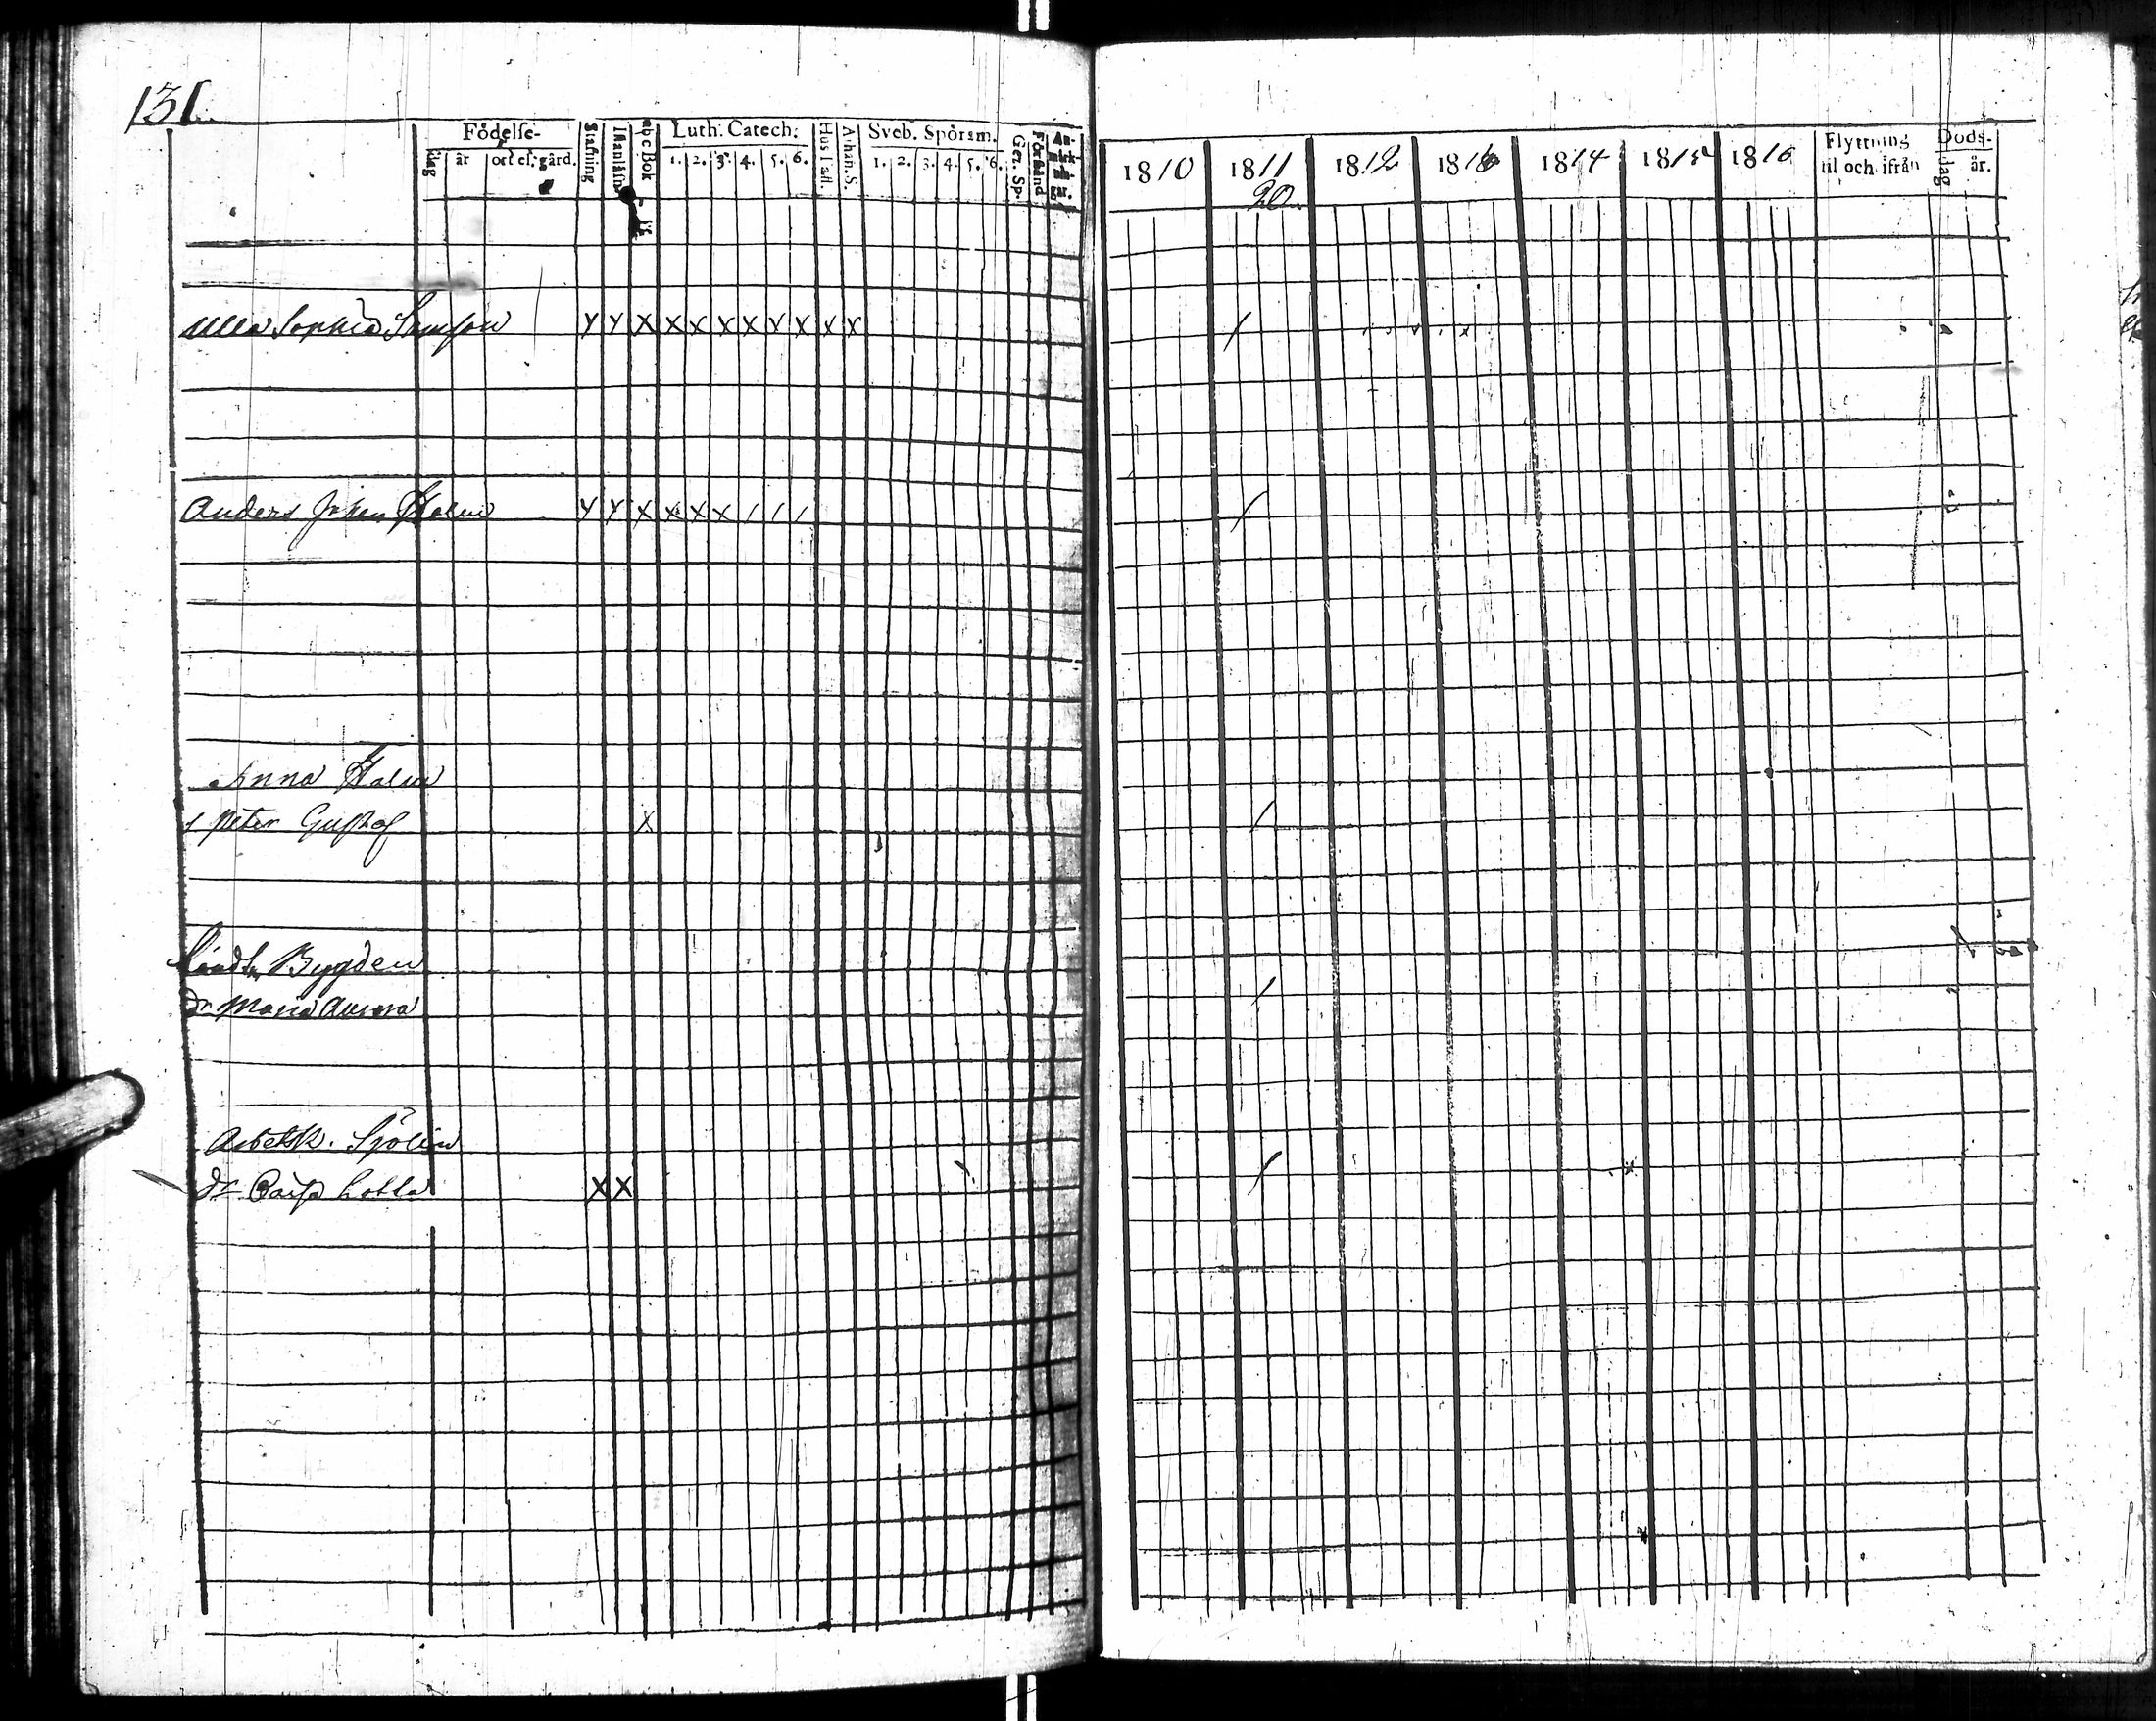 131.
Födelse- Stafning Innanläsn abc Bok Luth. Catech: Hus Tafl. Athan. S. Sveb. Spörsm. Ger. Sp. Förstånd An-märk-nin-gar.
dag år ort el. gård. 1. 2. 3. 4. 5. 6. 1. 2. 3. 4. 5. 6.
Ulla Sophia Samson Y Y X X X X X X X X X
Anders Johan Holm Y Y X X X X / / /
Anna Holm
s Peter Gustaf X
Bygden
dr Maria Aurora
Arbetsk. Sjölin
dr Lotta X X
1810 1811 1812 1813 1814 1815 1816 Flyttning til och ifrån Döds-
20. dag år.